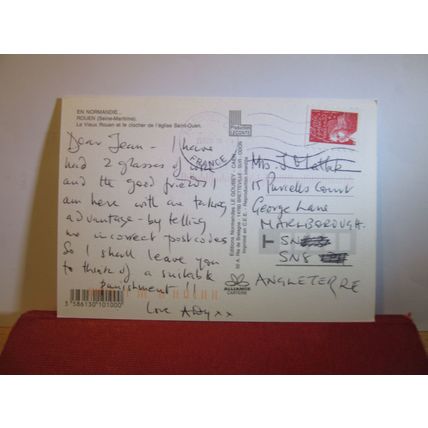 EN NORMANDIE...
ROUEN (Seine-Maritime)
Le Vieux Rouen et le clocher de l'église Saint-Ouen.
Dear Jean - I have
had 2 glasses of
and the good friends I
am here with are taking
advantage - by telling
me incorrect postcodes
So I shall leave you
to think of a suitable
punishment!!
Love xx
3 586130 101000
FRANCE
Editions Normandes LE GOUBEY - CAEN
Reproduction interdite
ALLIANCE
CARTERIE
Mrs. J
15 Purcells Court
George Lane
MARLBOROUGH.
SN8
ANGLETERRE